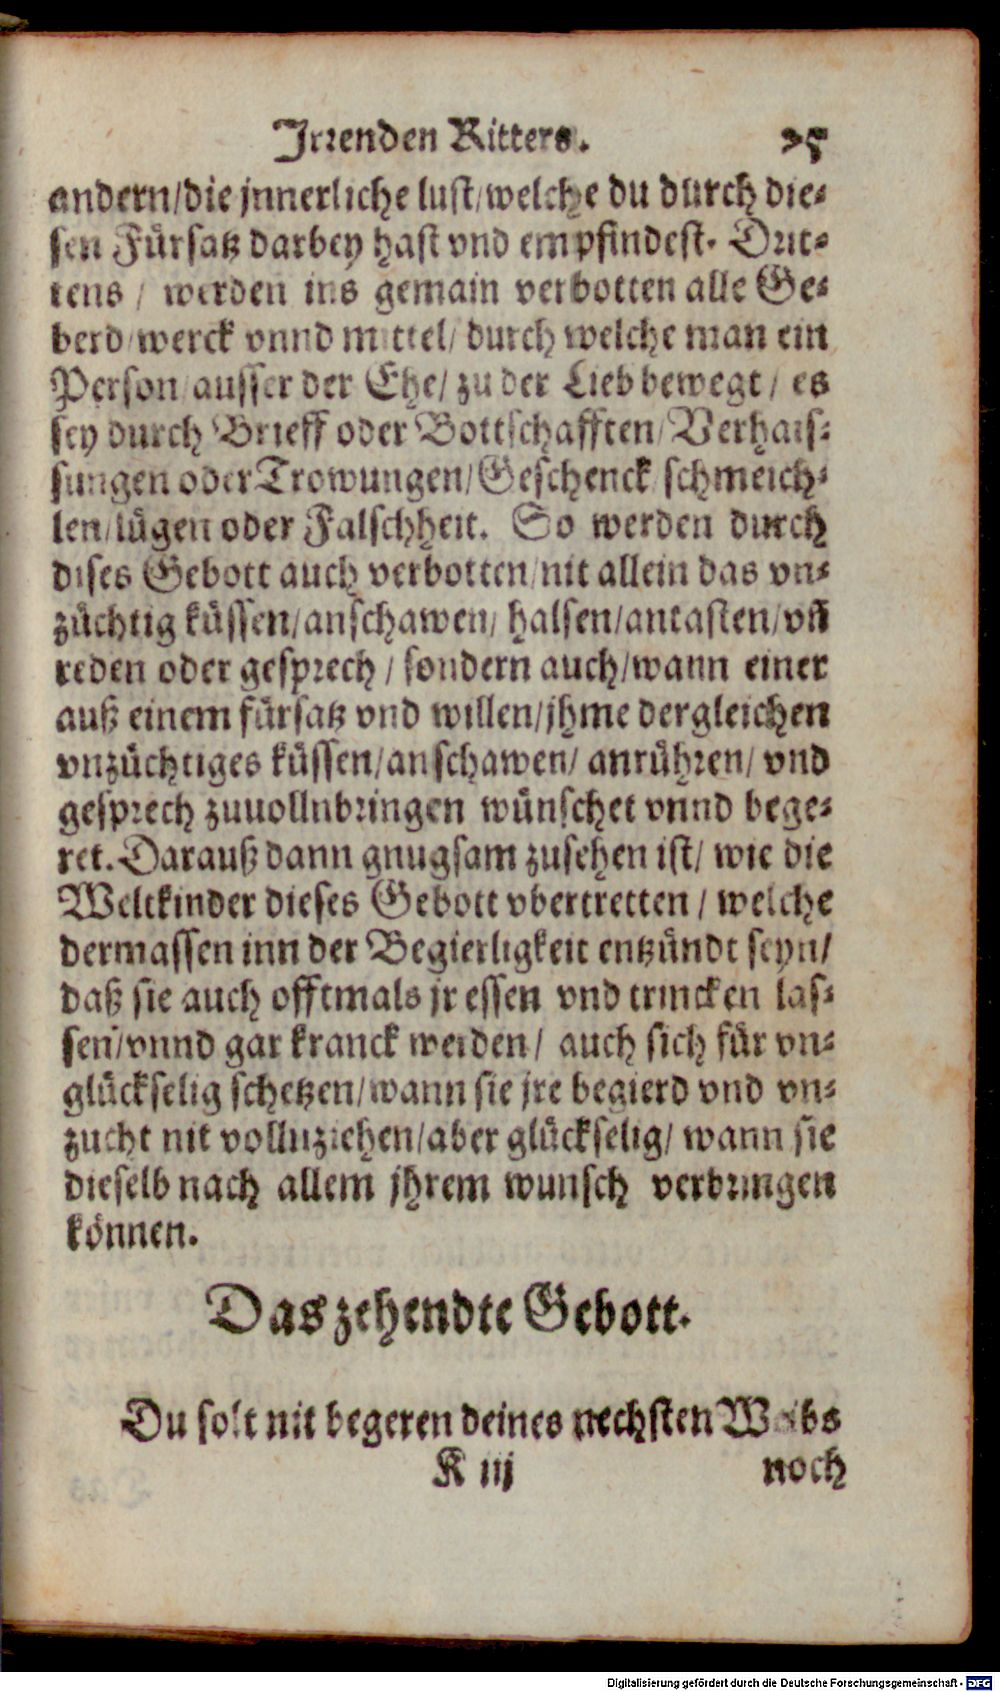 Irrenden Ritters. 75
andern/die jnnerliche lust/welche du durch die-
sen Fürsatz darbey hast vnd empfindest. Drit-
tens / werden ins gemain verbotten alle Ge-
berd/werck vnnd mittel/ durch welche man ein
Person/ausser der Ehe/ zu der Lieb bewegt / es
sey durch Brieff oder Bottschafften/Verhais-
sungen oder Trowungen/Geschenck/schmeich-
len/lügen oder Falschheit. So werden durch
dises Gebott auch verbotten/nit allein das vn-
züchtig küssen/anschawen/ halsen/antasten/vñ
reden oder gesprech / sondern auch/wann einer
auß einem fürsatz vnd willen/jhme dergleichen
vnzüchtiges küssen/anschawen/ anrühren/ vnd
gesprech zuuollnbringen wünschet vnnd bege-
ret. Darauß dann gnugsam zusehen ist/ wie die
Weltkinder dieses Gebott vbertretten / welche
dermassen inn der Begierligkeit entzündt seyn/
daß sie auch offtmals jr essen vnd trincken las-
sen/vnnd gar kranck werden/ auch sich für vn-
glückselig schetzen/wann sie jre begierd vnd vn-
zucht nit vollnziehen/aber glückselig/ wann sie
dieselb nach allem jhrem wunsch verbringen
können.
Das zehendte Gebott.
Du solt nit begeren deines nechsten Weibs
K iij noch
Digitalisierung gefördert durch die Deutsche Forschungsgemeinschaft - DFG